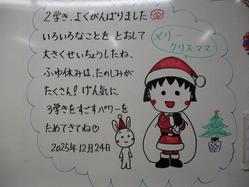 2学き、よくがんばりました
いろいろなことを とおして
大きくせいちょうしたね。
ふゆ休みは、たのしみが
たくさん！げん気に
3学きをすごすパワーを
ためてきてね♡
2025年12月24日
メリー
クリスマス